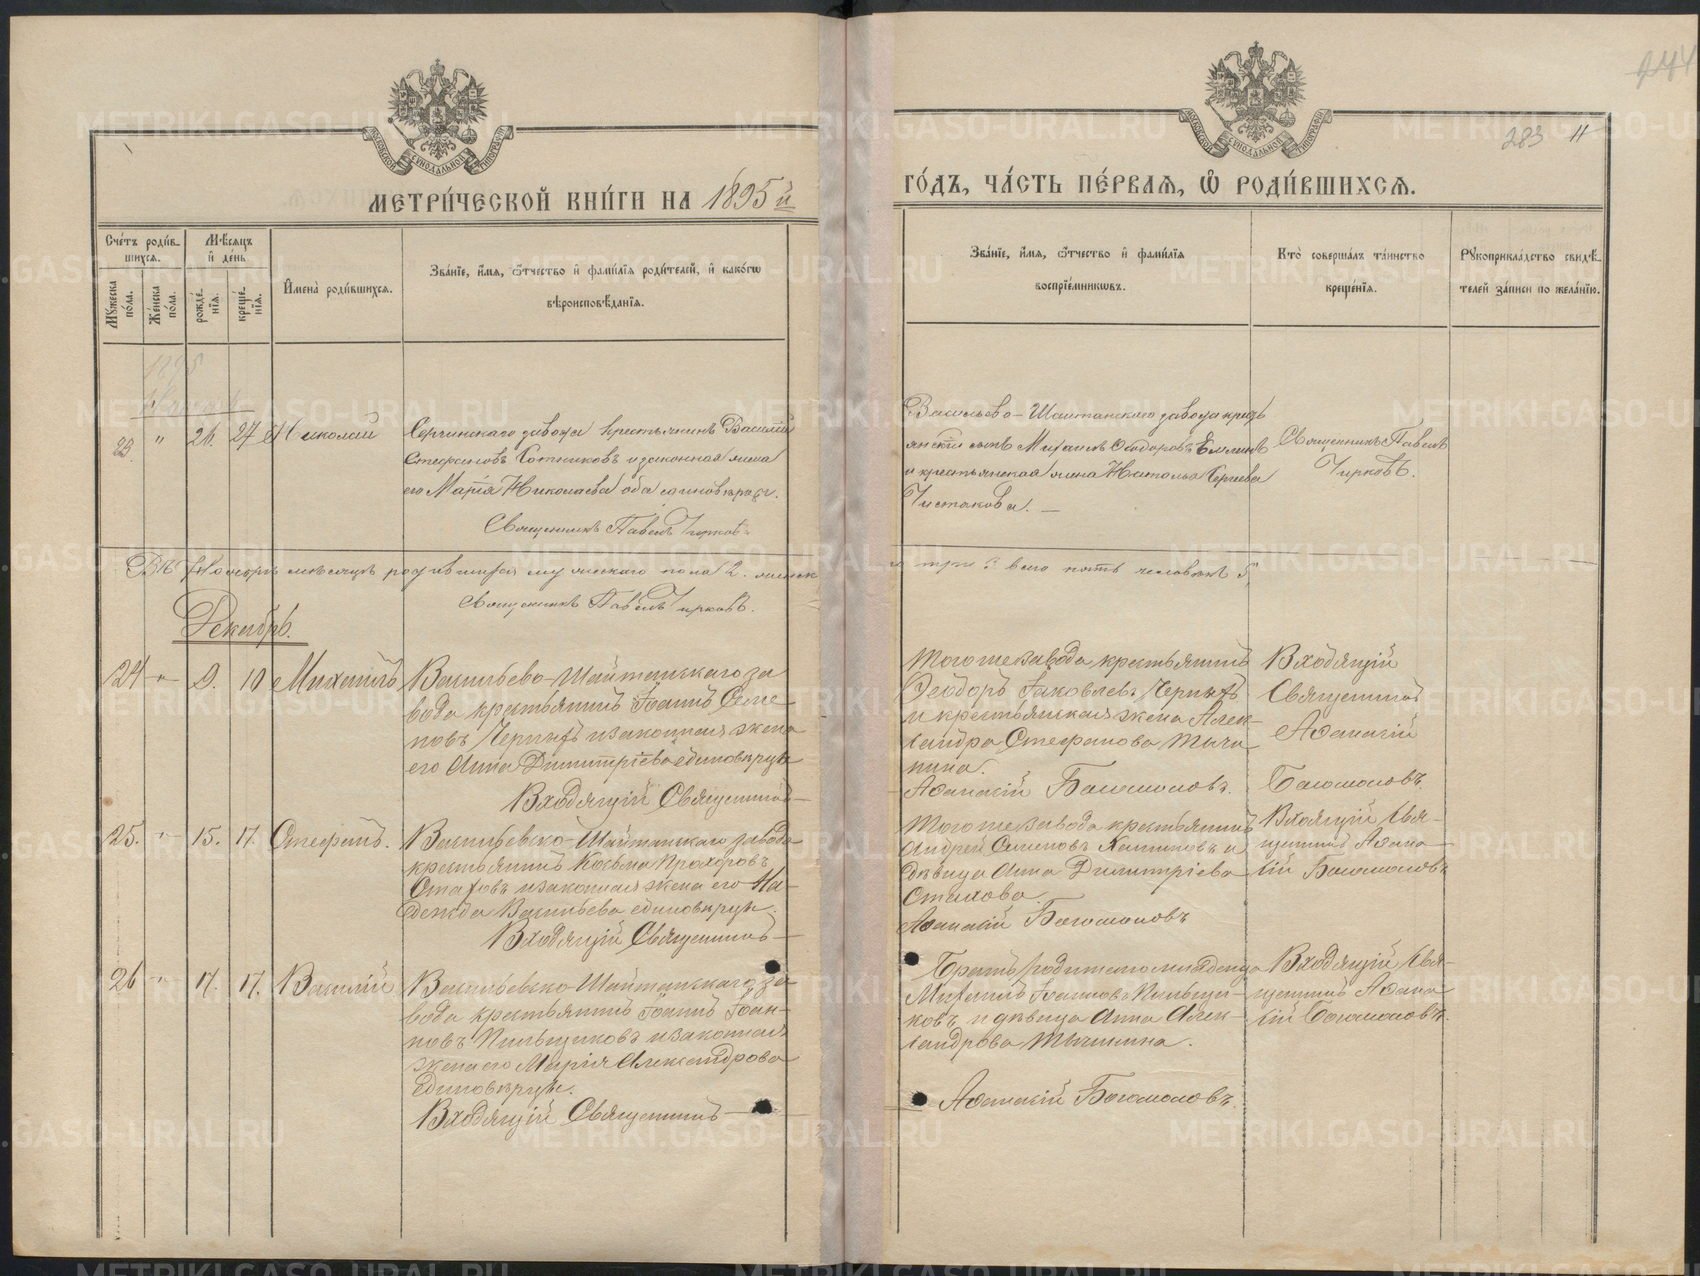 МЕТРИ́ЧЕСКОЙ КНИ́ГИ НА 1895й
ГО́ДЪ, ЧА́СТЬ ПЕ́РВАЯ, Ѡ҆ РОДИ́ВШИХСѦ.
283
Сче́тъ роди́в-
шихся.
Мꙋ́жеска по́ла.
Же́нска по́ла.
Мѣ́сяцъ и҆ де́нь
рожде́-
нїя.
креще́-
нїя.
И҆мена̀ роди́вшихся.
Зва́нїе, и҆́мя, ѻ҆́тчество и҆ фами́лїя роди́телей, и҆ како́гѡ
вѣроисповѣ́данїя.
Зва́нїе, и҆́мя, ѻ҆́тчество и҆ фами́лїя
воспрїе́мникѡвъ.
Кто̀ соверша́лъ та́инство
креще́нїя.
Рꙋкоприкла́дство свидѣ́-
телей за́писи по жела́нїю.
1895
23. " 26. 27 Николай
Сергинскаго завода крестьянинъ Василій
Стефановъ Котниковъ и законная жена
его Марія Николаева оба единовѣрцы.
Священникъ Павелъ Чирковъ
Васильево-Шайтанскаго завода кресть
янскій сынъ Михаилъ Ѳеодоровъ Емлинъ
и крестьянская жена Наталья Сергиева
Чистякова. —
Священникъ Павелъ
Чирковъ.
Въ Ноябрѣ мѣсяцѣ родившихся мужскаго пола 2. женск
три 3 всего пять человѣкъ 5
Священникъ Павелъ Чирковъ.
Декабрь.
24 " 9. 10 Михаилъ
Васильево-Шайтанскаго за
вода крестьянинъ Іоаннъ Семе
новъ Черныхъ и законная жена
его Анна Димитріева единовѣрцы
Входящій Священникъ
Того же завода крестьянинъ
Ѳеодоръ Іаковлевъ Черныхъ
и крестьянская жена Алек-
сандра Стефанова Тычи
нина.
Аѳанасій Богомоловъ.
Входящій
Священникъ
Аѳанасій
Богомоловъ
25. " 15. 17. Стефанъ.
Васильевско-Шайтанскаго завода
крестьянинъ Косьма Прохоровъ
Стаховъ и законная жена его На-
дежда Васильева единовѣрцы.
Входящій Священникъ
Того же завода крестьянинъ
Андрей Семеновъ Калинковъ и
дѣвица Анна Димитріева
Стахова.
Аѳанасій Богомоловъ
Входящій Свя-
щенникъ Аѳана
сій Богомоловъ
26 " 17. 17. Василій
Васильевско-Шайтанскаго за
вода крестьянинъ Іоаннъ Іоан-
новъ Пильщиковъ и законная
жена его Марія Александрова
единовѣрцы.
Входящій Священникъ
Братъ родителю младенца
Михаилъ Іоанновъ Пильщи-
ковъ и дѣвица Анна Алек-
сандрова Тычинина.
Аѳанасій Богомоловъ.
Входящій Свя-
щенникъ Аѳана
сій Богомоловъ.
METRIKI.GASO-URAL.RU